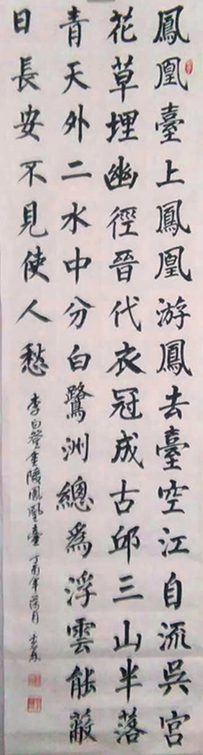 鳳凰臺上鳳凰游鳳去臺空江自流吳宮
花草埋幽徑晉代衣冠成古邱三山半落
青天外二水中分白鷺洲總為浮雲能蔽
日長安不見使人愁
李白登金陵鳳凰臺 丁酉年